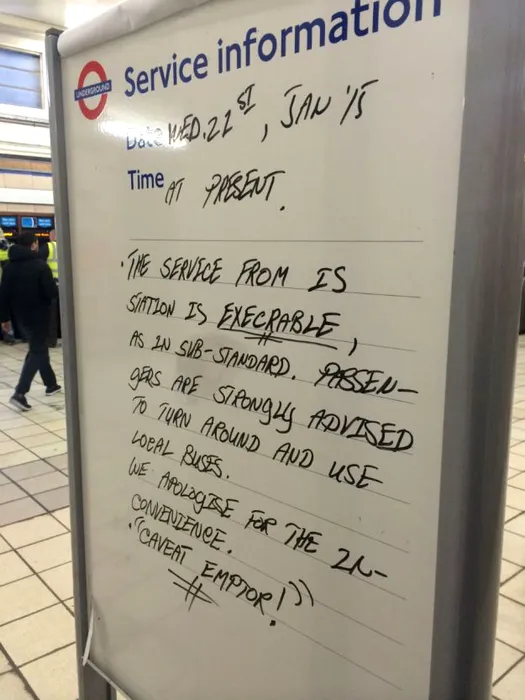 UNDERGROUND
Service information
Date WED. 21ST, JAN '15
Time AT PRESENT.
• THE SERVICE FROM IS
STATION IS EXECRABLE,
AS IN SUB-STANDARD. PASSEN-
GERS ARE STRONGLY ADVISED
TO TURN AROUND AND USE
LOCAL BUSES.
WE APOLOGISE FOR THE IN-
CONVENIENCE.
• "CAVEAT EMPTOR!"